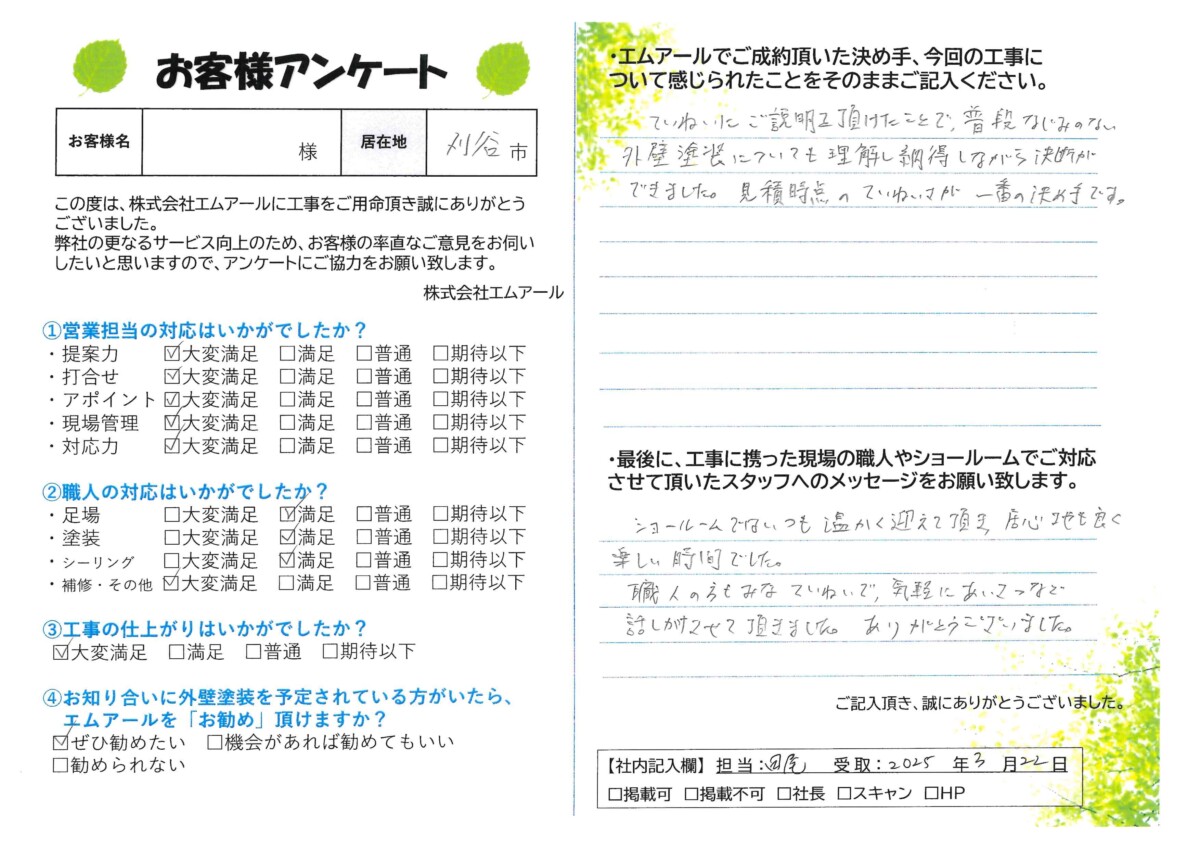 お客様アンケート
お客様名 様 居在地 刈谷 市
この度は、株式会社エムアールに工事をご用命頂き誠にありがとう
ございました。
弊社の更なるサービス向上のため、お客様の率直なご意見をお伺い
したいと思いますので、アンケートにご協力をお願い致します。
株式会社エムアール
①営業担当の対応はいかがでしたか？
・提案力 ☑大変満足 □満足 □普通 □期待以下
・打合せ ☑大変満足 □満足 □普通 □期待以下
・アポイント ☑大変満足 □満足 □普通 □期待以下
・現場管理 ☑大変満足 □満足 □普通 □期待以下
・対応力 ☑大変満足 □満足 □普通 □期待以下
②職人の対応はいかがでしたか？
・足場 □大変満足 ☑満足 □普通 □期待以下
・塗装 □大変満足 ☑満足 □普通 □期待以下
・シーリング □大変満足 ☑満足 □普通 □期待以下
・補修・その他 ☑大変満足 □満足 □普通 □期待以下
③工事の仕上がりはいかがでしたか？
☑大変満足 □満足 □普通 □期待以下
④お知り合いに外壁塗装を予定されている方がいたら、
エムアールを「お勧め」頂けますか？
☑ぜひ勧めたい □機会があれば勧めてもいい
□勧められない
・エムアールでご成約頂いた決め手、今回の工事に
ついて感じられたことをそのままご記入ください。
ていねいにご説明頂けたことで、普段なじみのない
外壁塗装についても理解し納得しながら決断が
できました。見積時点のていねいさが一番の決め手です。
・最後に、工事に携った現場の職人やショールームでご対応
させて頂いたスタッフへのメッセージをお願い致します。
ショールームではいつも温かく迎えて頂き、居心地も良く
楽しい時間でした。
職人の方もみなていねいで、気軽にあいさつなど
話しかけさせて頂きました。ありがとうございました。
ご記入頂き、誠にありがとうございました。
【社内記入欄】 担当: 受取：2025 年3 月22日
□掲載可 □掲載不可 □社長 □スキャン □HP